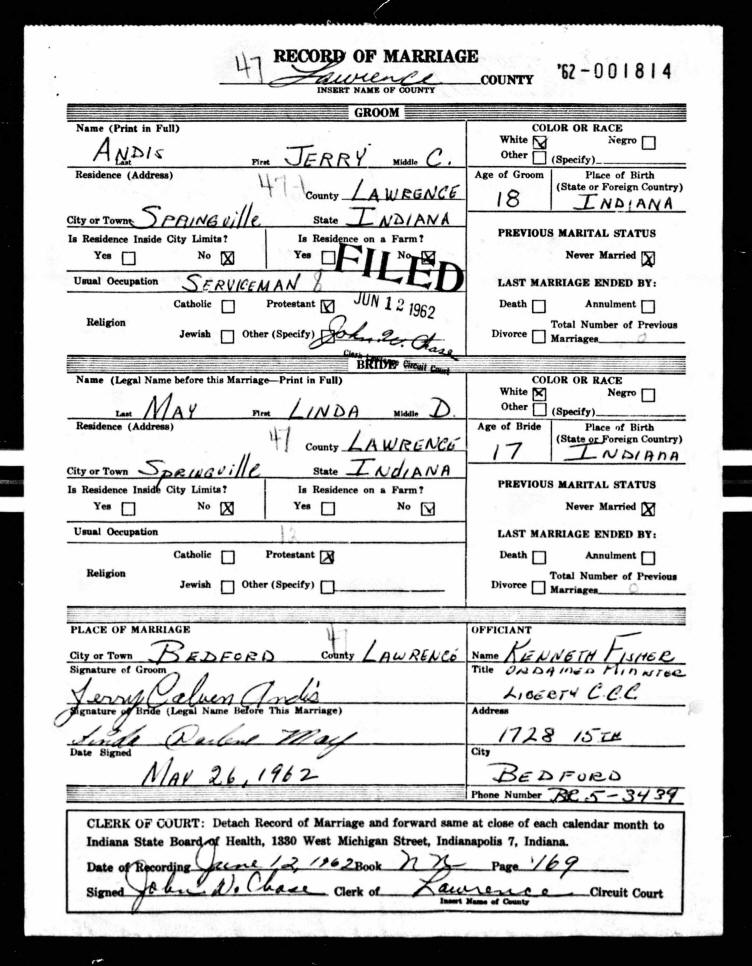 47 RECORD OF MARRIAGE
Lawrence COUNTY '62-001814
INSERT NAME OF COUNTY
GROOM
Name (Print in Full)
ANDIS JERRY C.
Last First Middle
COLOR OR RACE
White ☒ Negro ☐
Other ☐ (Specify)
Residence (Address)
47-1 County LAWRENCE
City or Town SPRINGVIlle State INDIANA
Age of Groom 18
Place of Birth
(State or Foreign Country)
INDIANA
Is Residence Inside City Limits?
Yes ☐ No ☒
Is Residence on a Farm?
Yes ☐ No ☒
PREVIOUS MARITAL STATUS
Never Married ☒
Usual Occupation SERVICEMAN 8
FILED
JUN 12 1962
John W. Chase
Clerk Lawrence Circuit Court
Religion
Catholic ☐ Protestant ☒
Jewish ☐ Other (Specify) ☐
LAST MARRIAGE ENDED BY:
Death ☐ Annulment ☐
Divorce ☐ Total Number of Previous
Marriages 0
BRIDE
Name (Legal Name before this Marriage—Print in Full)
Last MAY First LINDA Middle D.
COLOR OR RACE
White ☒ Negro ☐
Other ☐ (Specify)
Residence (Address)
47 County LAWRENCE
City or Town SPRINGVIlle State INDIANA
Age of Bride 17
Place of Birth
(State or Foreign Country)
INDIANA
Is Residence Inside City Limits?
Yes ☐ No ☒
Is Residence on a Farm?
Yes ☐ No ☒
PREVIOUS MARITAL STATUS
Never Married ☒
Usual Occupation
Religion
Catholic ☐ Protestant ☒
Jewish ☐ Other (Specify) ☐
LAST MARRIAGE ENDED BY:
Death ☐ Annulment ☐
Divorce ☐ Total Number of Previous
Marriages 0
PLACE OF MARRIAGE
47
City or Town BEDFORD County LAWRENCE
Signature of Groom
Jerry Calven Andis
Signature of Bride (Legal Name Before This Marriage)
Linda Darlene May
Date Signed
MAY 26, 1962
OFFICIANT
Name KENNETH FISHER
Title ORDAINED MINISTER
LIBERTY C.C.C.
Address
1728 15TH
City
BEDFORD
Phone Number BR. 5-3439
CLERK OF COURT: Detach Record of Marriage and forward same at close of each calendar month to
Indiana State Board of Health, 1330 West Michigan Street, Indianapolis 7, Indiana.
Date of Recording June 12, 1962 Book NN Page 169
Signed John W. Chase Clerk of Lawrence Circuit Court
Insert Name of County